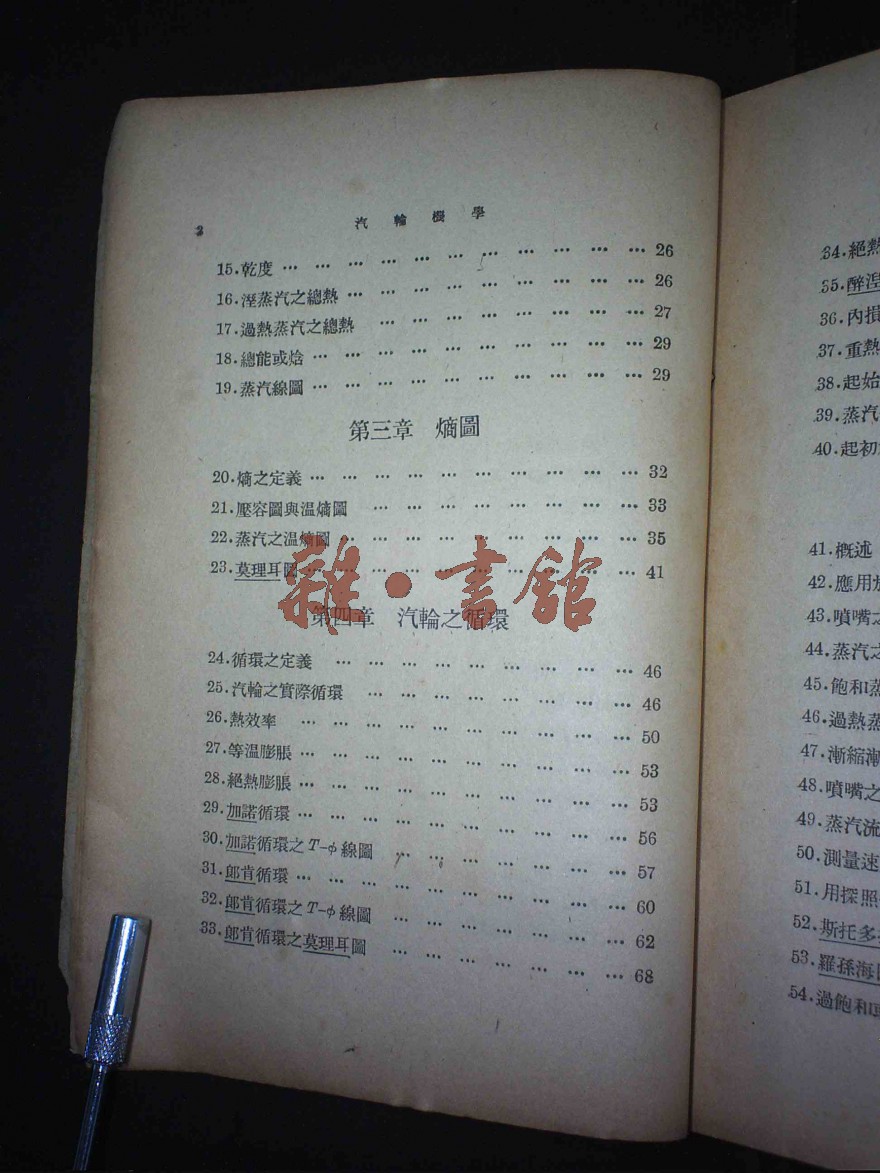 2 汽輪機學
15.乾度 … … … … … … … … … … … 26
16.溼蒸汽之總熱 … … … … … … … … … 26
17.過熱蒸汽之總熱 … … … … … … … … 27
18.總能或焓 … … … … … … … … … … 29
19.蒸汽線圖 … … … … … … … … … … 29
第三章 熵圖
20.熵之定義 … … … … … … … … … … 32
21.壓容圖與温熵圖 … … … … … … … … 33
22.蒸汽之温熵圖 … … … … … … … … … 35
23.莫理耳圖 … … … … … … … … … … 41
雜·書館
第四章 汽輪之循環
24.循環之定義 … … … … … … … … … 46
25.汽輪之實際循環 … … … … … … … … 46
26.熱效率 … … … … … … … … … … 50
27.等温膨脹 … … … … … … … … … … 53
28.絕熱膨脹 … … … … … … … … … … 53
29.加諾循環 … … … … … … … … … … 56
30.加諾循環之 T-φ 線圖 … … … … … … … 57
31.郎肯循環 … … … … … … … … … … 60
32.郎肯循環之 T-φ 線圖 … … … … … … … 62
33.郎肯循環之莫理耳圖 … … … … … … … 68
34.絕熱
35.
36.內損
37.重熱
38.起始
39.蒸汽
40.起初
41.概述
42.應用於
43.噴嘴之
44.蒸汽之
45.飽和蒸
46.過熱蒸
47.漸縮漸
48.噴嘴之
49.蒸汽流
50.測量速
51.用探照
52.斯托多
53.羅孫海
54.過飽和